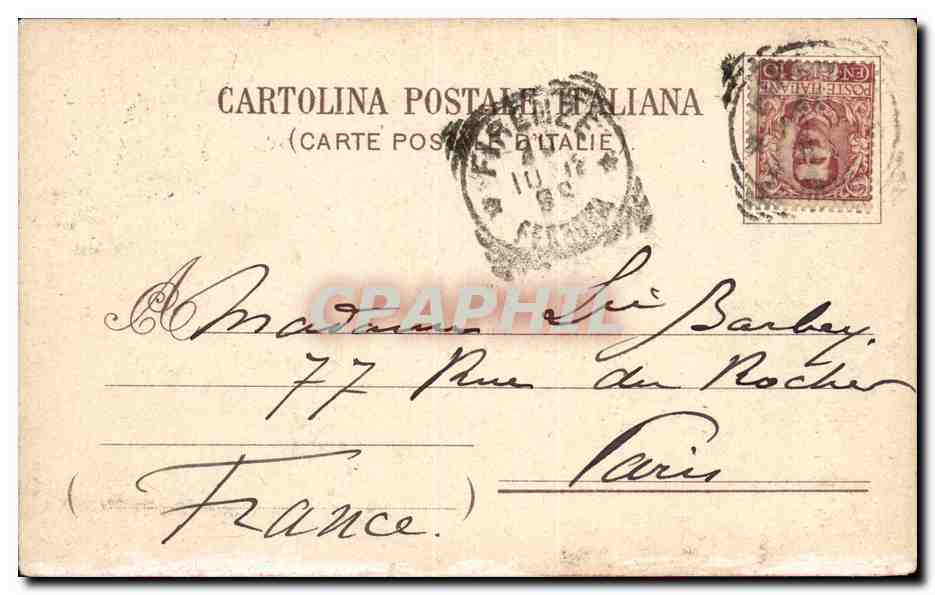 CARTOLINA POSTALE ITALIANA
(CARTE POSTALE D'ITALIE).
FIRENZE
POSTE ITALIANE
CPAPHIL
A Madame Barbey,
77 Rue du Rocher
Paris
(France.)